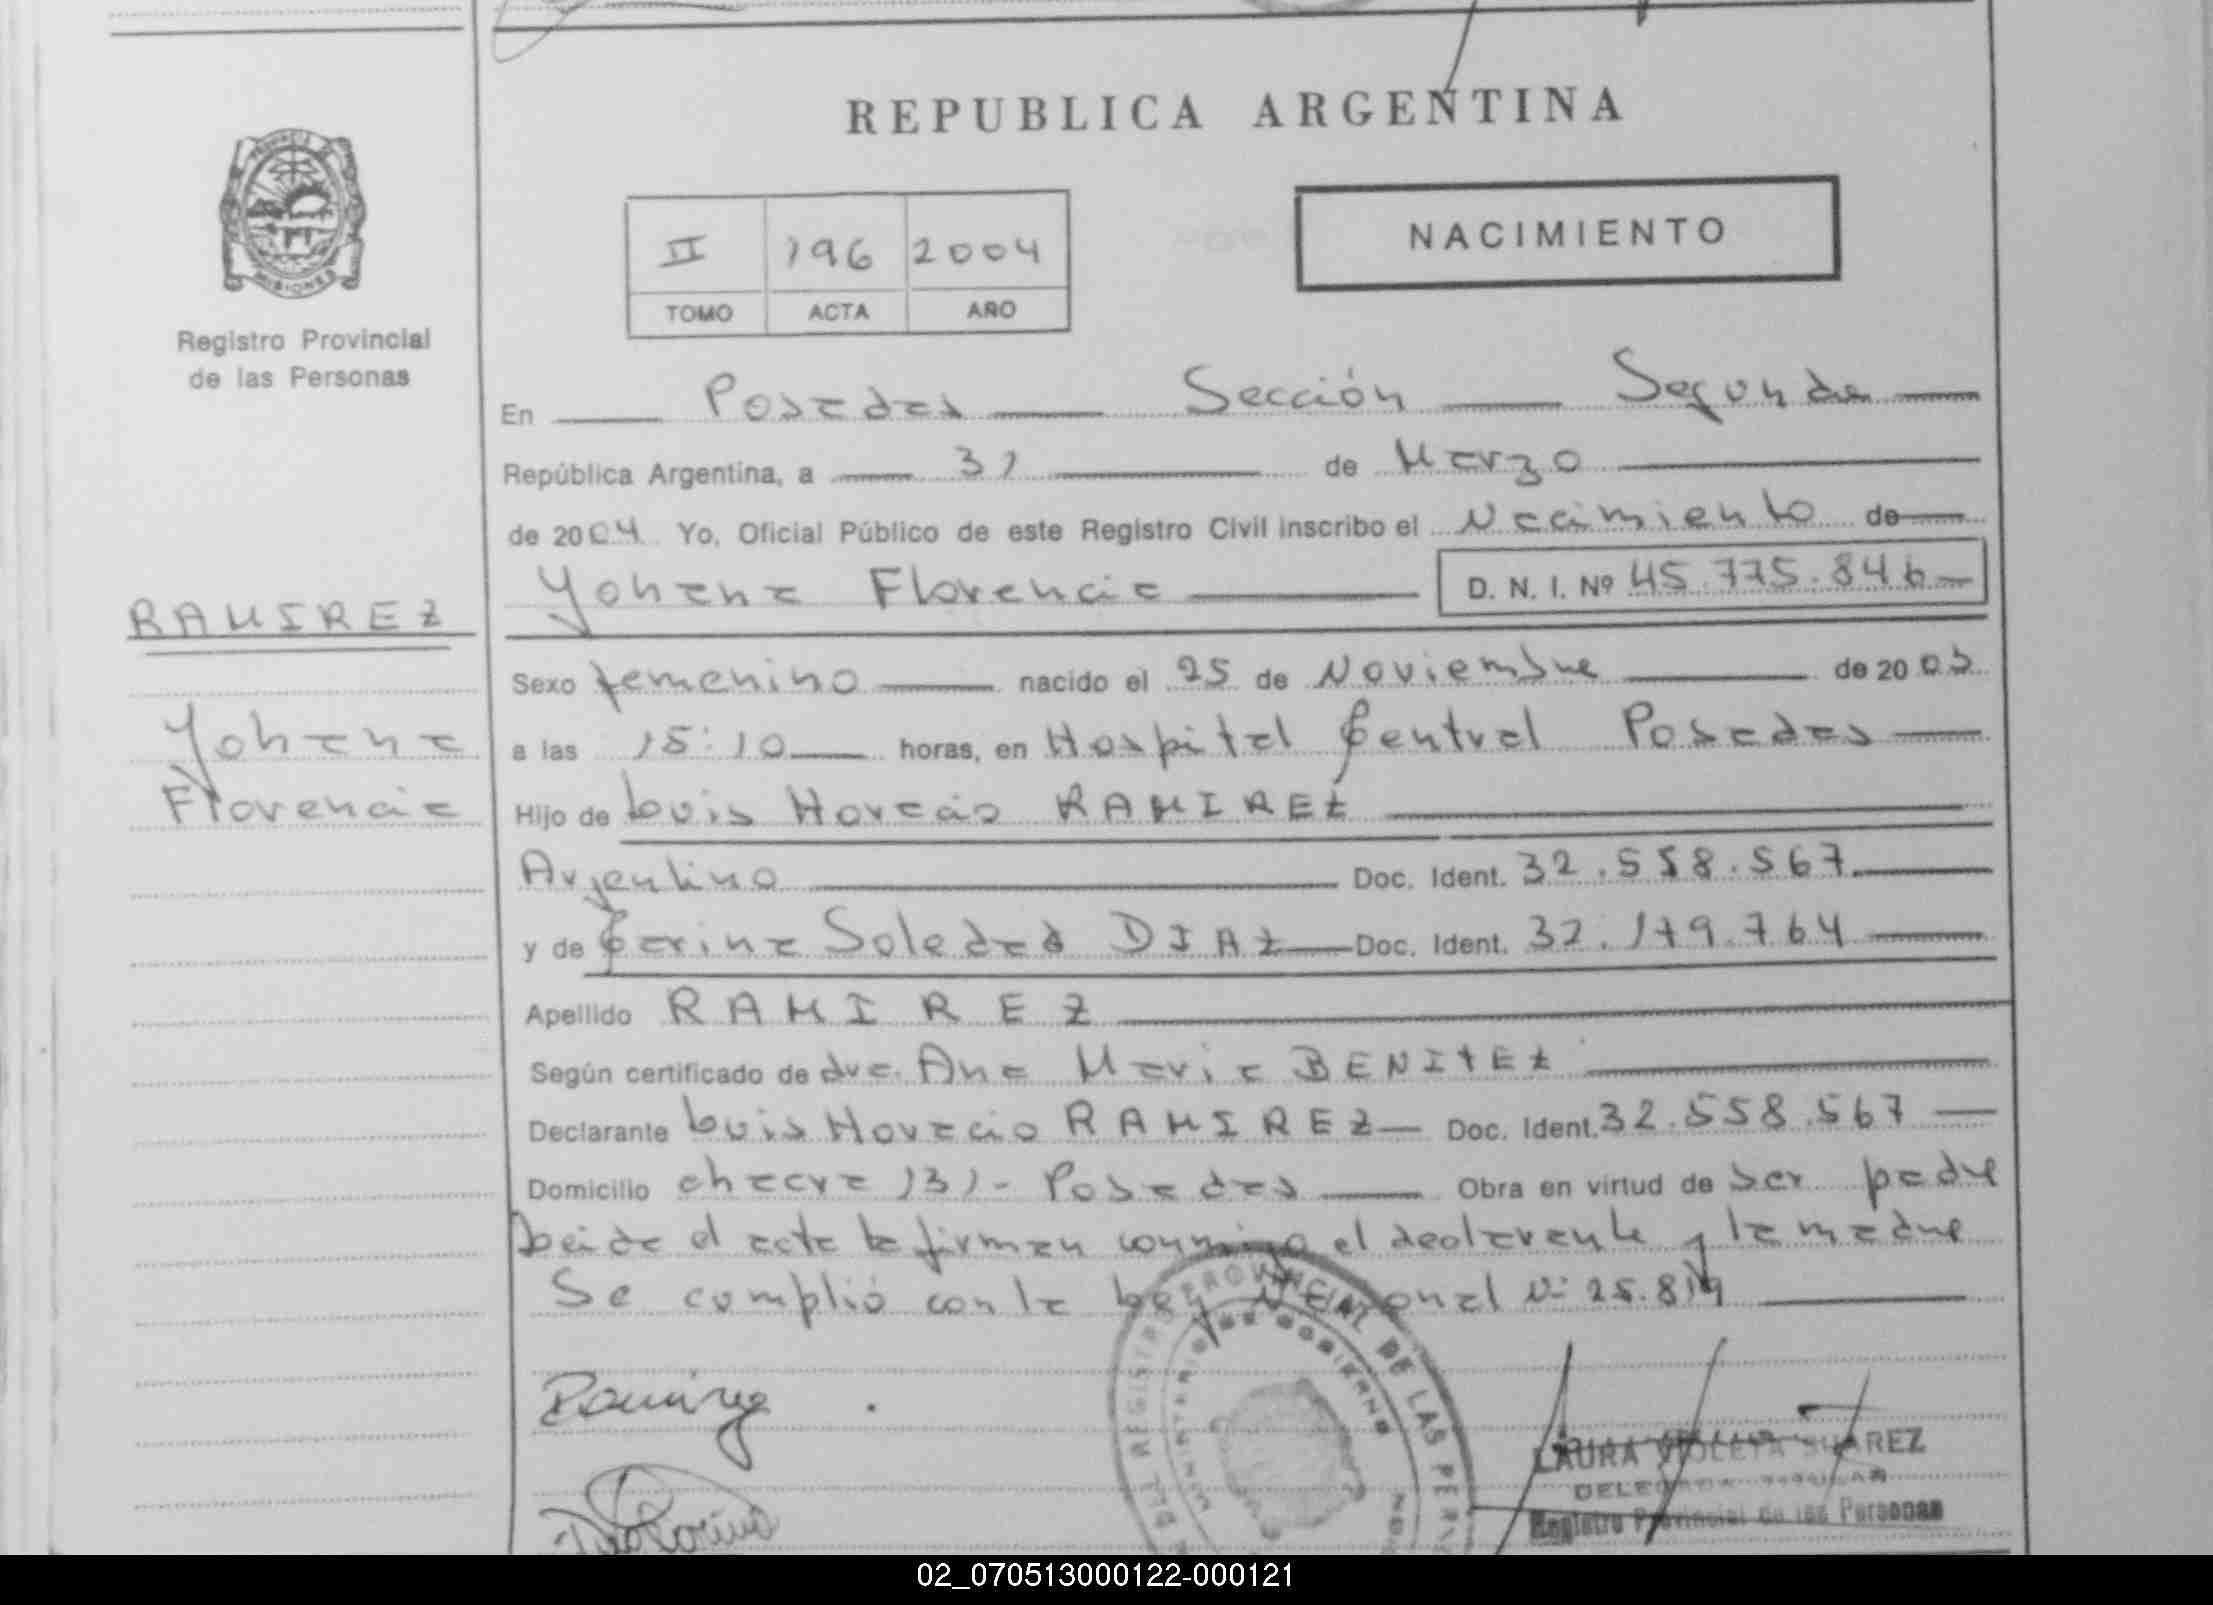 REPUBLICA ARGENTINA
PROVINCIA DE
MISIONES
Registro Provincial
de las Personas
II 196 2004
TOMO ACTA AÑO
NACIMIENTO
En Posadas Sección Segunda
República Argentina, a 31 de Marzo
de 2004 Yo, Oficial Público de este Registro Civil inscribo el Nacimiento de
Yohana Florencia D. N. I. Nº 45.775.846
RAMIREZ
Yohana
Florencia
Sexo femenino nacido el 25 de Noviembre de 2003
a las 15:10 horas, en Hospital Central Posadas
Hijo de Luis Horacio RAMIREZ
Argentino Doc. Ident. 32.558.567
y de Carina Soledad DIAZ Doc. Ident. 32.179.764
Apellido RAMIREZ
Según certificado de dra. Ana Maria BENITEZ
Declarante Luis Horacio RAMIREZ Doc. Ident. 32.558.567
Domicilio chacra 131- Posadas Obra en virtud de ser padre
Leida el acta la firman conmigo el declarante y la madre
Se cumplió con la Ley Nacional Nº 25.819
Ramirez
REGISTRO PROVINCIAL DE LAS PERSONAS
LAURA VIOLETA SUAREZ
DELEGADA TITULAR
Registro Provincial de las Personas
02_070513000122-000121